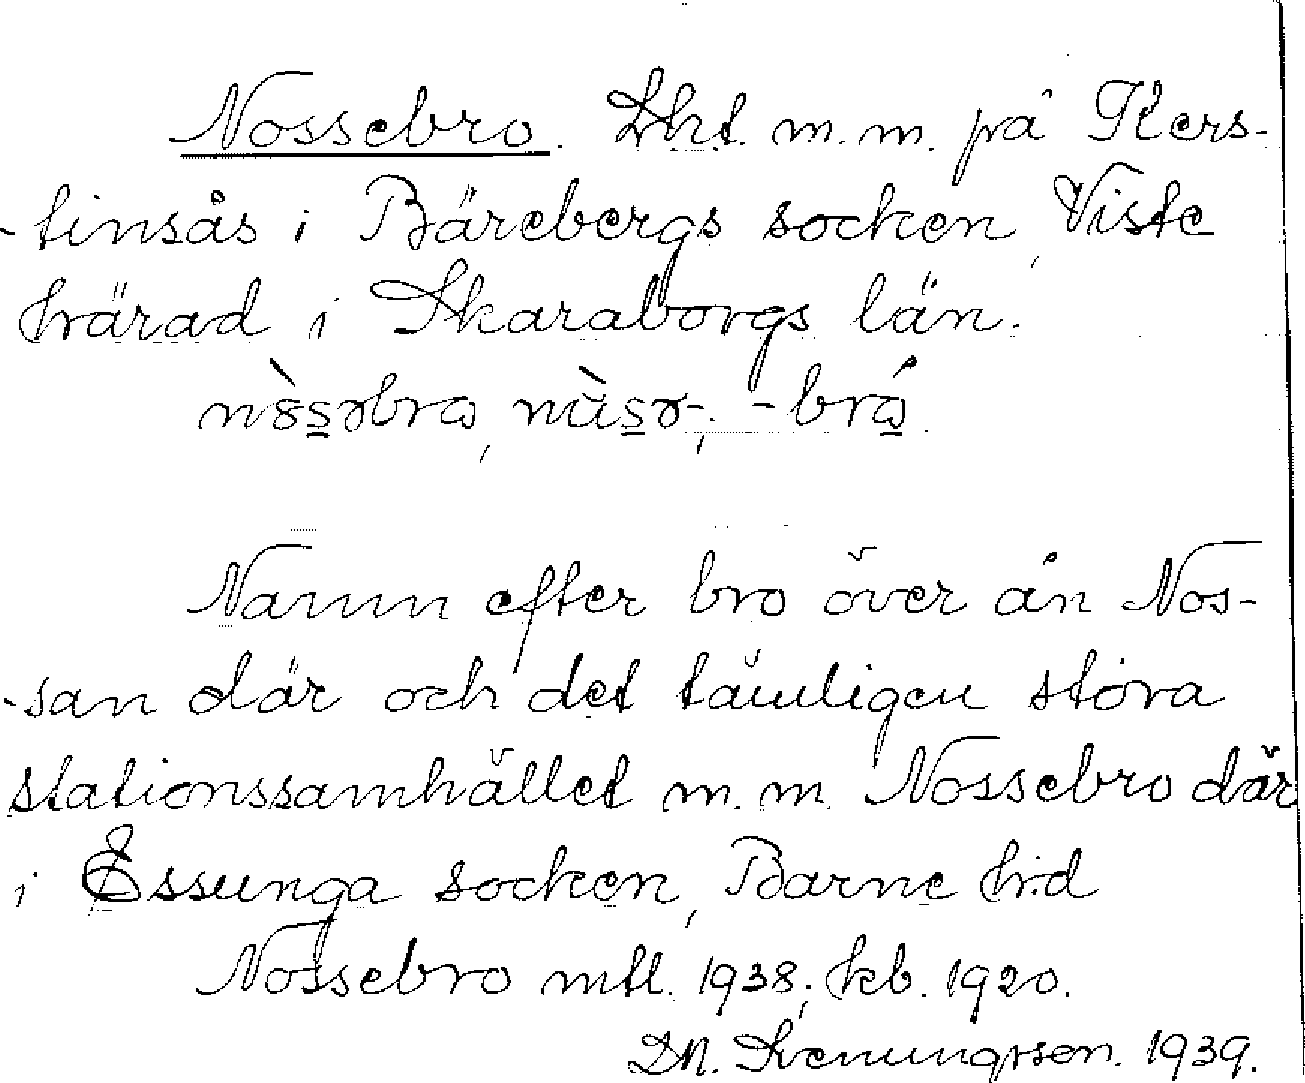 Nossebro. Lht. m.m. på Kers-
-tinsås i Bärebergs socken, Viste
härad i Skaraborgs län.
Namn efter bro över ån Nos-
-san där och det tämligen stora
stationssamhället m.m. Nossebro där
i Essunga socken, Barne h:d
Nossebro mtl. 1938; kb. 1920.
1939.